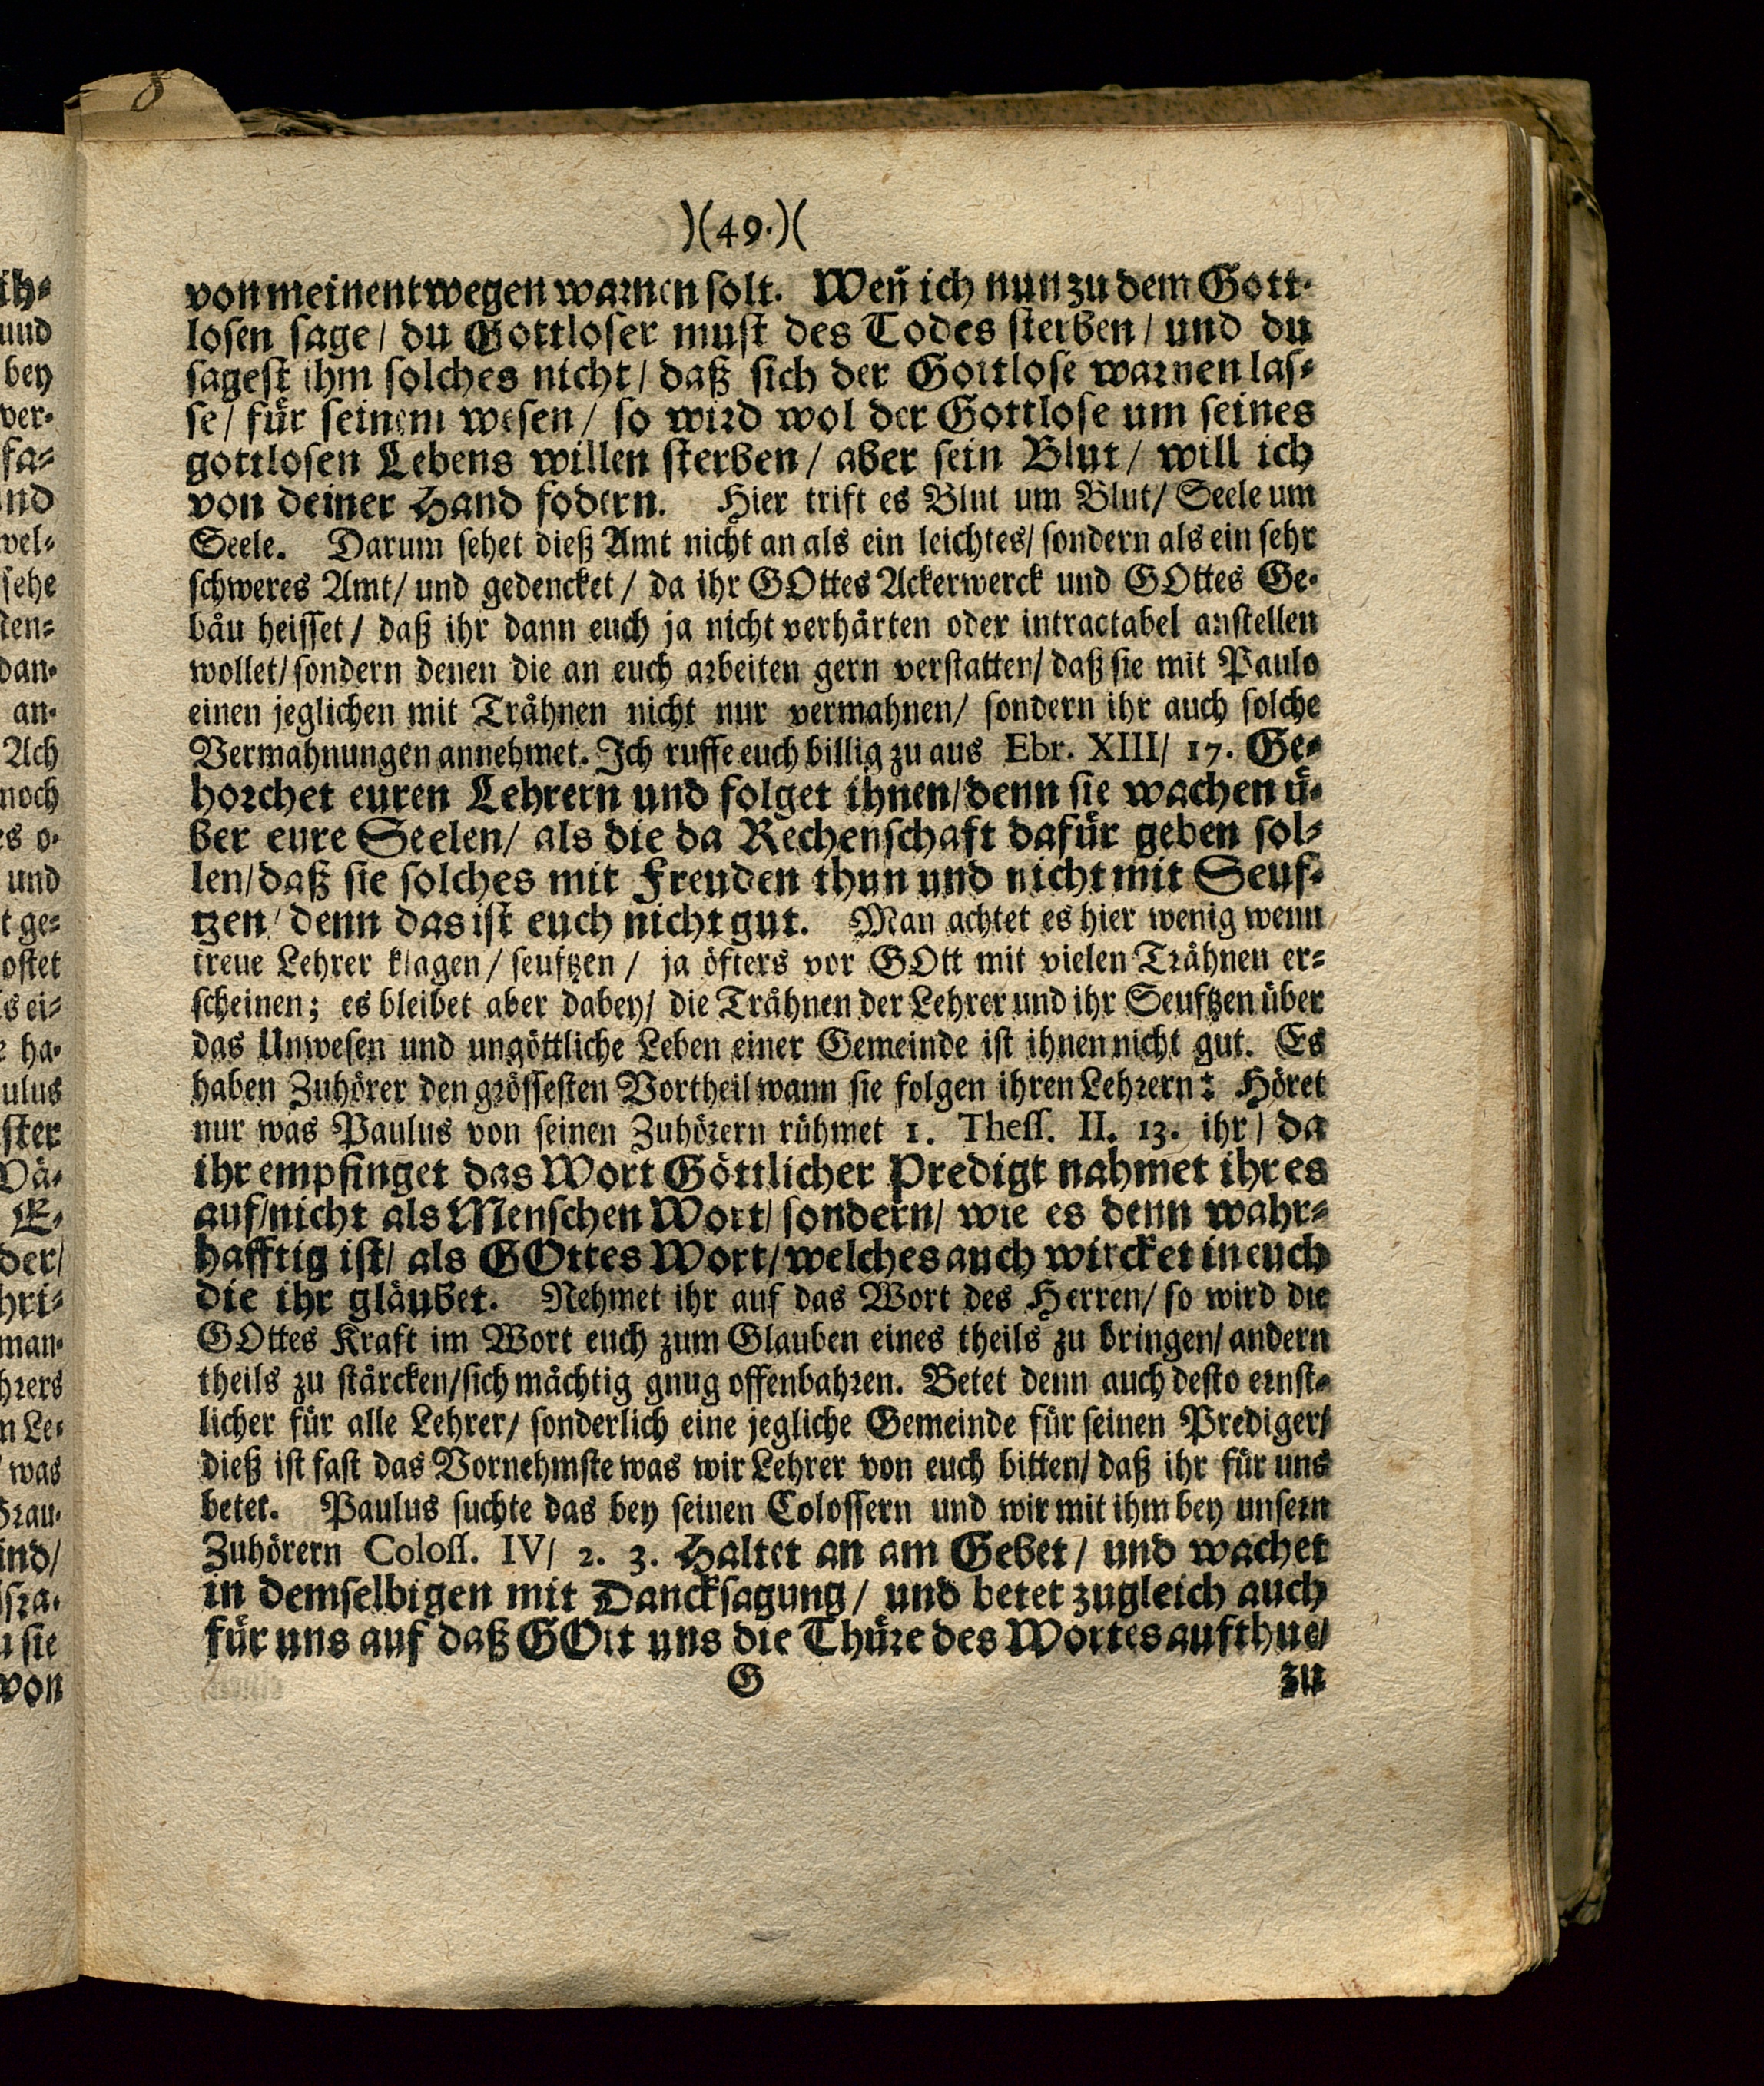 8
)(49.)(
von meinentwegen warnen solt. Weñ ich nun zu dem Gott-
losen sage/ du Gottloser must des Todes sterben/ und du
sagest ihm solches nicht/ daß sich der Gottlose warnen las-
se/ für seinem wesen/ so wird wol der Gottlose um seines
gottlosen Lebens willen sterben/ aber sein Blut/ will ich
von deiner Hand fodern. Hier trift es Blut um Blut/ Seele um
Seele. Darum sehet dieß Amt nicht an als ein leichtes/ sondern als ein sehr
schweres Amt/ und gedencket/ da ihr GOttes Ackerwerck und GOttes Ge-
bäu heisset/ daß ihr dann euch ja nicht verhärten oder intractabel anstellen
wollet/ sondern denen die an euch arbeiten gern verstatten/ daß sie mit Paulo
einen jeglichen mit Trähnen nicht nur vermahnen/ sondern ihr auch solche
Vermahnungen annehmet. Ich ruffe euch billig zu aus Ebr. XIII/ 17. Ge-
horchet euren Lehrern und folget ihnen/ denn sie wachen ü-
ber eure Seelen/ als die da Rechenschaft dafür geben sol-
len/ daß sie solches mit Freuden thun und nicht mit Seuf-
tzen/ denn das ist euch nicht gut. Man achtet es hier wenig wenn
treue Lehrer klagen/ seuftzen/ ja öfters vor GOtt mit vielen Trähnen er-
scheinen; es bleibet aber dabey/ die Trähnen der Lehrer und ihr Seuftzen über
das Unwesen und ungöttliche Leben einer Gemeinde ist ihnen nicht gut. Es
haben Zuhörer den grössesten Vortheil wann sie folgen ihren Lehrern: Höret
nur was Paulus von seinen Zuhörern rühmet 1. Thess. II. 13. ihr/ da
ihr empfinget das Wort Göttlicher Predigt nahmet ihr es
auf/ nicht als Menschen Wort/ sondern/ wie es denn wahr-
hafftig ist/ als GOttes Wort/ welches auch wircket in euch
die ihr gläubet. Nehmet ihr auf das Wort des Herren/ so wird die
GOttes Kraft im Wort euch zum Glauben eines theils zu bringen/ andern
theils zu stärcken/ sich mächtig gnug offenbahren. Betet denn auch desto ernst-
licher für alle Lehrer/ sonderlich eine jegliche Gemeinde für seinen Prediger/
dieß ist fast das Vornehmste was wir Lehrer von euch bitten/ daß ihr für uns
betet. Paulus suchte das bey seinen Colossern und wir mit ihm bey unsern
Zuhörern Coloss. IV/ 2. 3. Haltet an am Gebet/ und wachet
in demselbigen mit Dancksagung/ und betet zugleich auch
für uns auf daß GOtt uns die Thüre des Wortes aufthue/
G zu